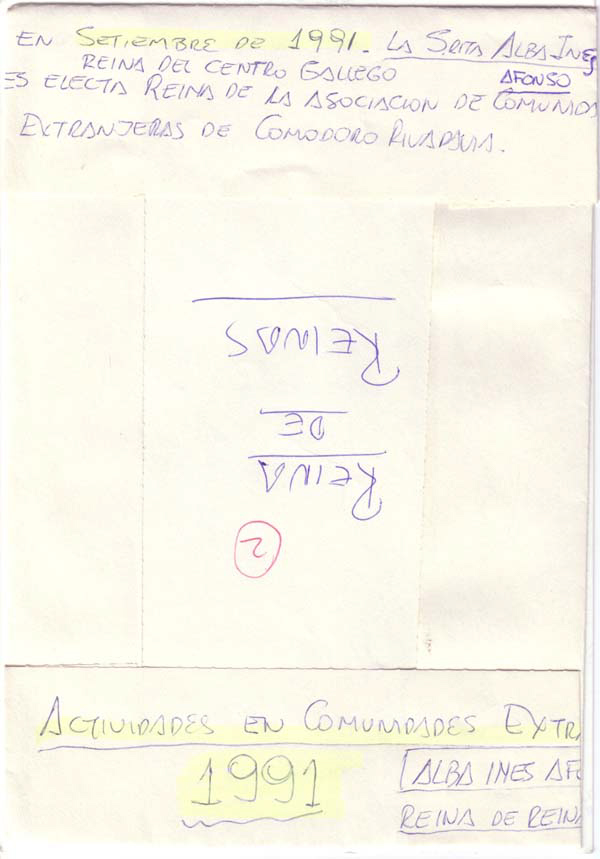 EN SETIEMBRE DE 1991. LA SRTA ALBA INES
REINA DEL CENTRO GALLEGO AFONSO
ES ELECTA REINA DE LA ASOCIACION DE COMUNIDA
EXTRANJERAS DE COMODORO RIVADAVIA.
REINA
DE
REINAS
2
ACTIVIDADES EN COMUNIDADES EXTRA
1991
ALBA INES AFO
REINA DE REINA